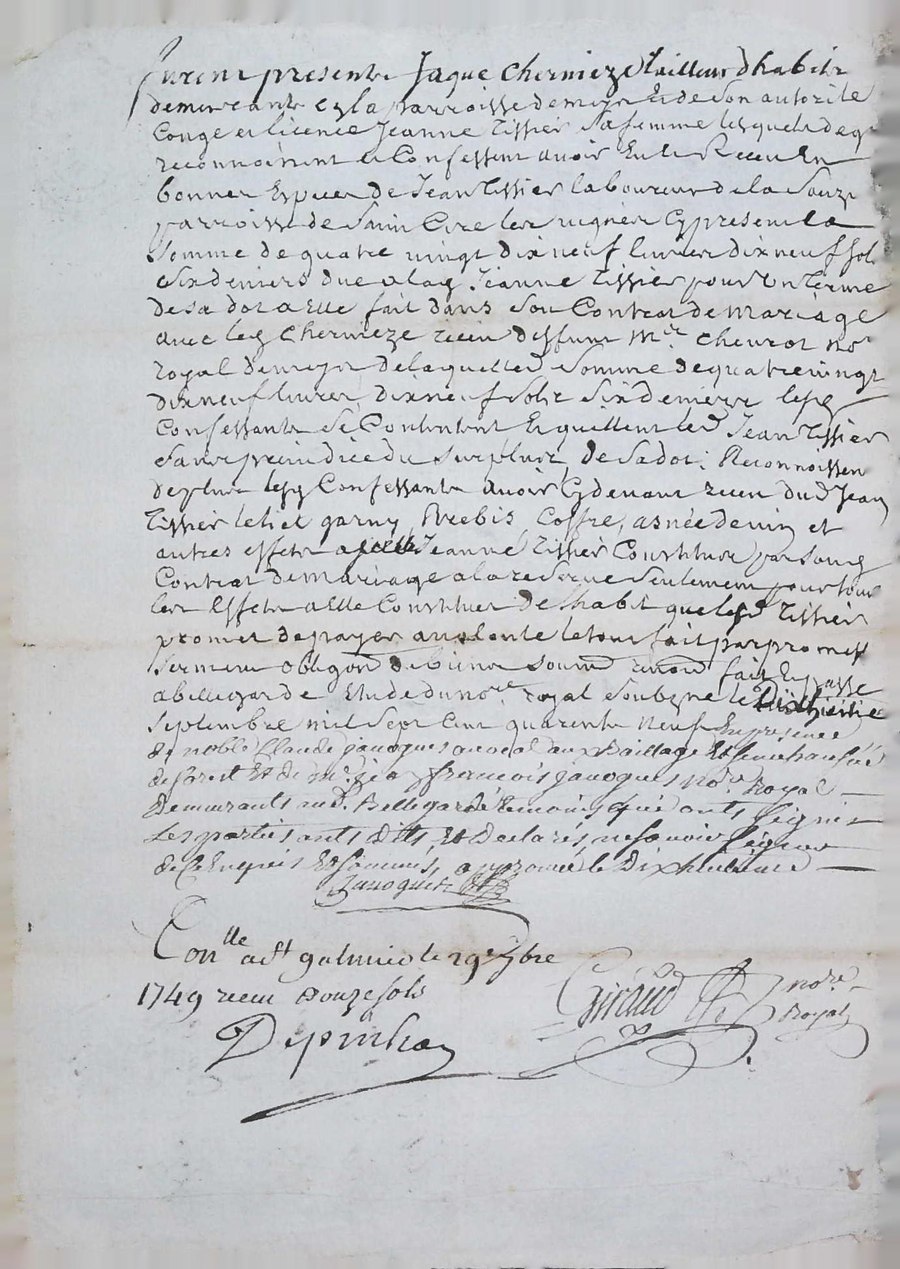 furent presents Jaque Chermieze tailleur dhabits
demeurante en la parroisse de meys et de son autorite
Conge et licence Jeanne tissier sa femme lesquels de gre
reconnoissent et Confessent avoir Eu et Receu En
bonnes Especes de Jean tissier laboureur de la
parroisse de Saint Cire les vignes Cy present la
somme de quatre vingt dix neuf livres dix neuf sols
six deniers due a lad Jeanne tissier pour un terme
de sa dot a Elle fait dans son Contrat de mariage
avec led Chermieze receu deffunt Mr. Chevrot nore
royal de meys de laquelle d somme de quatre vingt
dix neuf livres dix neuf sols six deniers lesd
Confessants se Contentent Et quittent led Jean tissier
sans prejudice du surplus de sa dot, Reconnoissent
de plus lesd Confessants avoir Cy devant receu dud Jean
tissier le lict garny, Brebis, Coffre, asnée de vin et
autres effets a Jeanne tissier Constitues par sond
Contrat de mariage a la reserve seulement pour tous
les Effets a Elle Constitues de habit que led tissier
promet de payer a volonte le tout fait par promesse
serment obligaon de biens soumd renond fait Et passe
a bellegarde Etude du nore royal soubzne le Dixhuitie
septembre mil sept Cent quarente neuf En presence
de noble Claude javogues avocat aux Baillage Et senechaussée
de forest Et de Mr. francois javogues nore Royal
Demeurants aud. Bellegarde temoins qui onts signes
les parties onts dits, Et Declares, ne scavoir signer
de Ce Enquis Et sommés, approuvé le Dixhuitieme
Javogues
Conlle a st galmier le 29e 7bre
1749 receu douze sols
Giraud nore
Royal